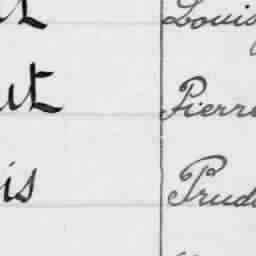 Louis
ut Pierre
is Prud